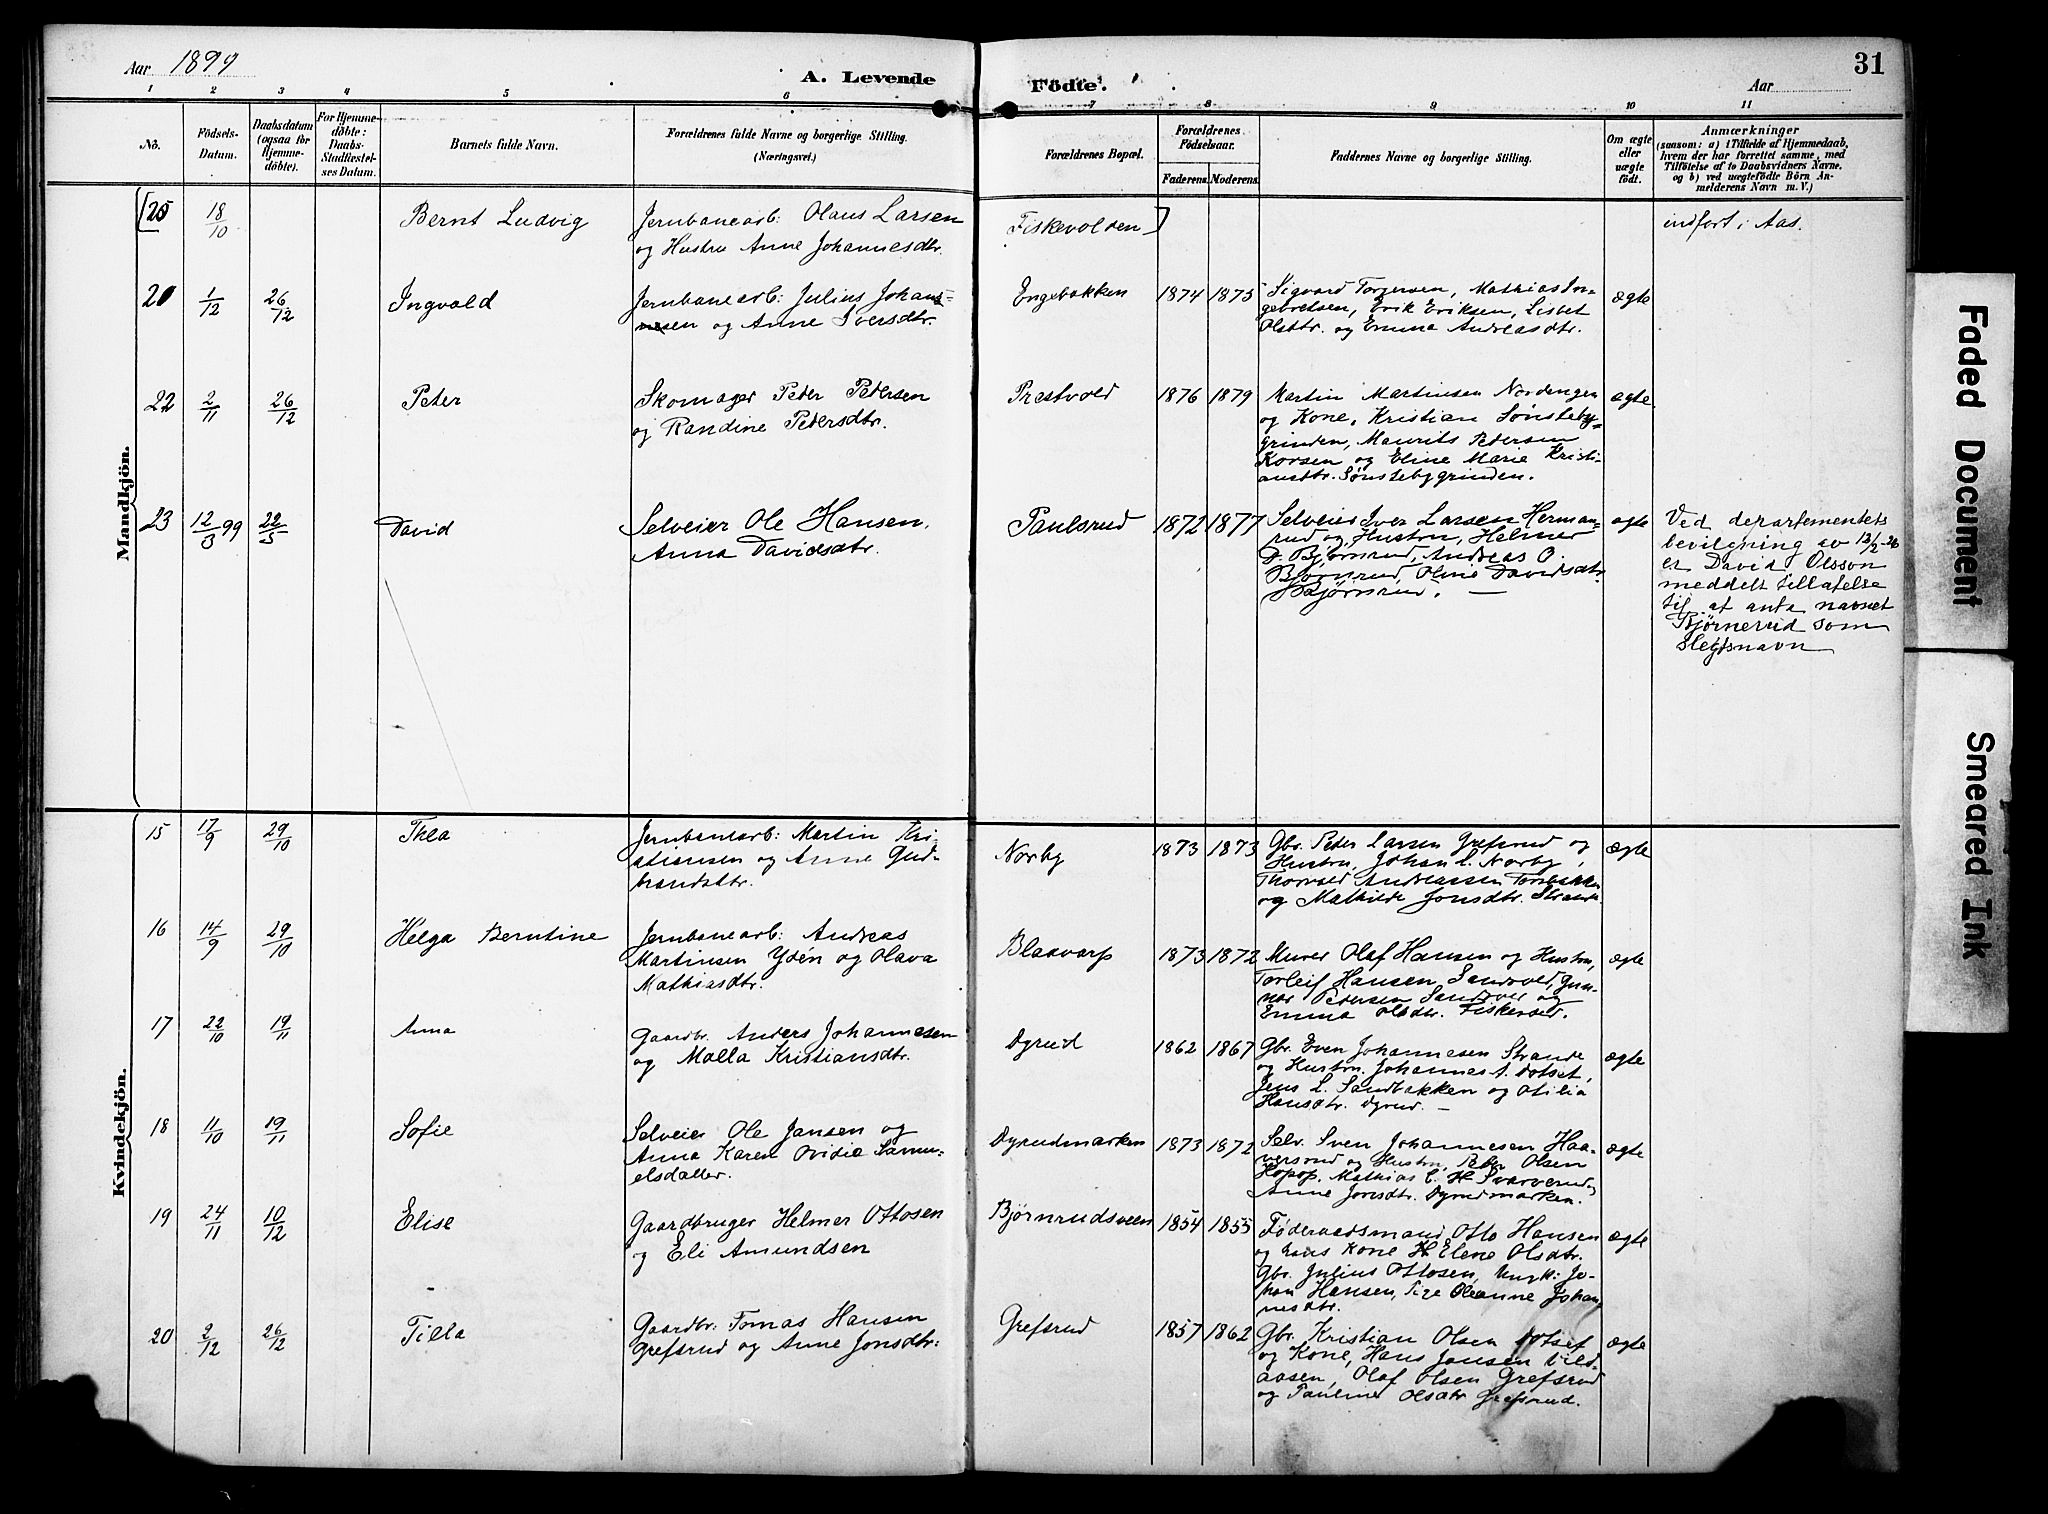 Aar 1899
A. Levende
Födte.
Aar
31
1 2 3 4 5 6 7 8 9 10 11
No.
Födsels-
Datum.
Daabsdatum
(ogsaa for
Hjemme-
döbte).
For Hjemme-
döbte:
Daabs-
Stadfæstel-
ses Datum.
Barnets fulde Navn.
Forældrenes fulde Navne og borgerlige Stilling.
(Næringsvei.)
Forældrenes Bopæl.
Forældrenes
Födselsaar.
Faderens. Moderens.
Faddernes Navne og borgerlige Stilling.
Om ægte
eller
uægte
födt.
Anmærkninger
(saasom: a) i Tilfælde af Hjemmedaab,
hvem der har forrettet samme, med
Tilföielse af to Daabsvidners Navne,
og b) ved uægtefödte Börn An-
melderens Navn m. V.)
Mandkjön.
25 18/10 Bernt Ludvig
Jernbanearb: Olaus Larsen
og Hustru Anne Johannesdtr.
Fiskevolden
indført i Aas.
20 1/12 26/12 Ingvald
Jernbanearb: Julius Johan-
sen og Anne Iversdtr.
Engebakken 1874 1875
Sigvard Torgersen, Mathias In-
gebretsen, Erik Eriksen, Lisbet
Olsdtr. og Emma Andreasdtr.
ægte
22 2/11 26/12 Peter
Skomager Peder Pedersen
og Randine Pedersdtr.
Prestvold 1876 1879
Martin Martinsen Nordengen
og Kone, Kristian Sønsteby-
grinden, Maurits Pedersen
Korsen og Eline Marie Kristi-
ansdtr. Sønstebygrinden.
ægte
23 12/3 99 22/5 David
Selveier Ole Hansen,
Anna Davidsdtr.
Paulsrud 1872 1877
Selveier Iver Larsen Herman-
rud og Hustru, Helmer
D. Bjørnrud, Andreas O.
Bjørnrud, Oline Davidsdtr.
Bjørnrud. —
ægte
Ved departementets
bevilgning av 12/2-26
er David Olsson
meddelt tillatelse
til at anta navnet
Bjørnerud som
slegtsnavn
Kvindekjön.
15 17/9 29/10 Thea
Jernbanearb: Martin Kri-
stiansen og Anne Gud-
brandsdtr.
Norby 1873 1873
Gbr. Peter Larsen Grefsrud og
Hustru, Johan L. Norby,
Thorvald Andreassen
og Mathilde Jonsdtr. Strande.
ægte
16 14/9 29/10 Helga Berntine
Jernbanearb: Andreas
Martinsen Ydén og Olava
Mathiasdtr.
Blaavarp 1873 1872
Murer Olaf Hansen og Hustru,
Torleif Hansen Sandvold, Gun-
nar Pedersen Sandover og
Emma Olsdtr. Fiskevold.
ægte
17 22/10 19/11 Anna
Gaardbr. Anders Johannesen
og Malla Kristiansdtr.
Dyrud 1862 1867
Gbr. Even Johannesen Strande
og Hustru, Johannes A. Dotset,
Jens L. Sandbakken og Otilia
Hansdtr. Dyrud. —
ægte
18 11/10 19/11 Sofie
Selveier Ole Jansen og
Anna Karen Ovidie Samu-
elsdatter.
Dyrudmarken 1873 1872
Selv. Sven Johannesen Haa-
versrud og Hustru, Peter Olsen
Hopop, Mathias C. H. Svarverud,
Anne Jonsdtr. Dyrudmarken.
ægte
19 24/11 10/12 Elise
Gaardbruger Helmer Ottosen
og Eli Amundsen
Bjørnrudsveen 1854 1855
Føderaadsmand Otto Hansen
og hans Kone Helene Olsdtr.
Gbr. Julius Ottosen, Ungk: Jo-
han Hansen, Pige Oleanne Johan-
nesdtr.
ægte
20 2/12 26/12 Tilla
Gaardbr: Tomas Hansen
Grefsrud og Anne Jonsdtr:
Grefsrud 1857 1862
Gbr. Kristian Olsen Dotset
og Kone, Hans Jansen Vild-
aasen, Olaf Olsen Grefsrud
og Pauline Olsdtr Grefsrud.
ægte
Faded Document
Smeared Ink